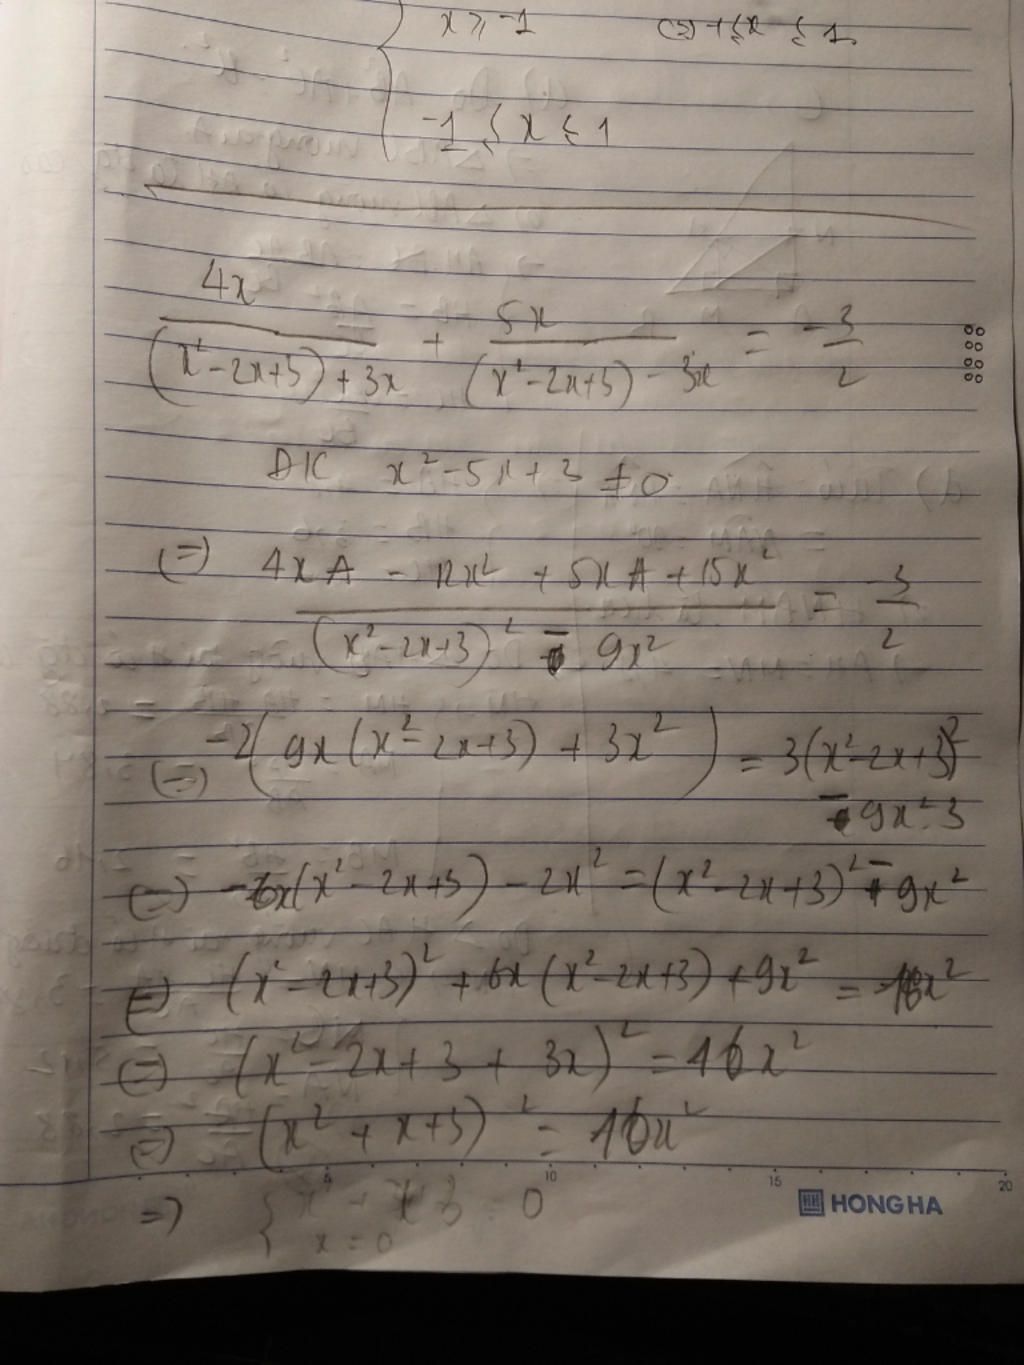 x ⩾ -1
-1 ≤ x ≤ 1
4x/((x²-2x+3)+3x) + 5x/((x²-2x+3)-3x) = -3/2
ĐK x²-5x+3 ≠ 0
(=) (4xA - 12x² + 5xA + 15x²)/((x²-2x+3)² - 9x²) = -3/2
(=) -2(9x(x²-2x+3) + 3x²) = 3(x²-2x+3)²
- 9x².3
(=) -6x(x²-2x+3) - 2x² = (x²-2x+3)² - 9x²
(=) (x²-2x+3)² + 6x(x²-2x+3) + 9x² = 16x²
(=) (x²-2x+3+3x)² = 16x²
(=) (x²+x+3)² = 16x²
=) = 0
x = 0
5 10 15 20
HONG HA